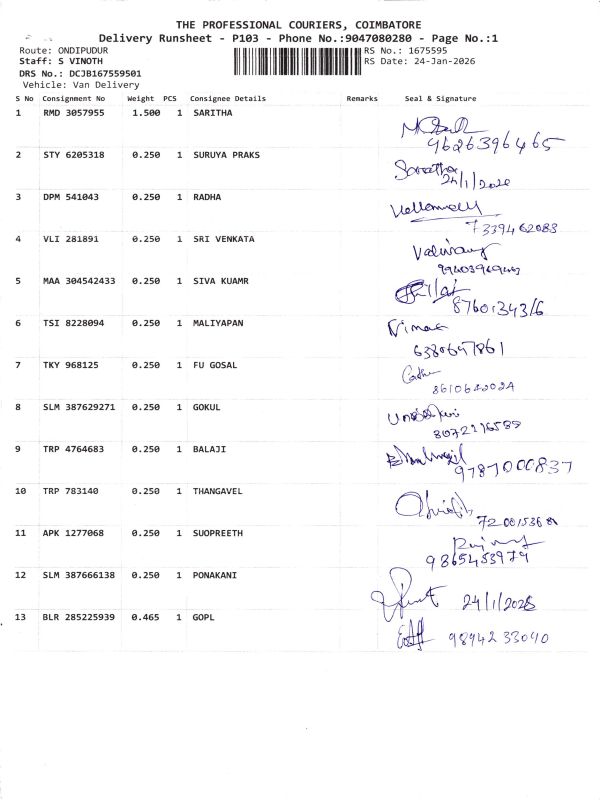 THE PROFESSIONAL COURIERS, COIMBATORE
Delivery Runsheet - P103 - Phone No.:9047080280 - Page No.:1
Route: ONDIPUDUR RS No.: 1675595
Staff: S VINOTH RS Date: 24-Jan-2026
DRS No.: DCJB167559501
Vehicle: Van Delivery
S No Consignment No Weight PCS Consignee Details Remarks Seal & Signature
1 RMD 3057955 1.500 1 SARITHA
9626396465
2 STY 6205318 0.250 1 SURUYA PRAKS
Saratha
24/1/2026
3 DPM 541043 0.250 1 RADHA
7339462083
4 VLI 281891 0.250 1 SRI VENKATA
5 MAA 304542433 0.250 1 SIVA KUAMR
6 TSI 8228094 0.250 1 MALIYAPAN
7 TKY 968125 0.250 1 FU GOSAL
8 SLM 387629271 0.250 1 GOKUL
9 TRP 4764683 0.250 1 BALAJI
9787000837
10 TRP 783140 0.250 1 THANGAVEL
11 APK 1277068 0.250 1 SUOPREETH
9865453979
12 SLM 387666138 0.250 1 PONAKANI
24/1/2026
13 BLR 285225939 0.465 1 GOPL
98942 33040